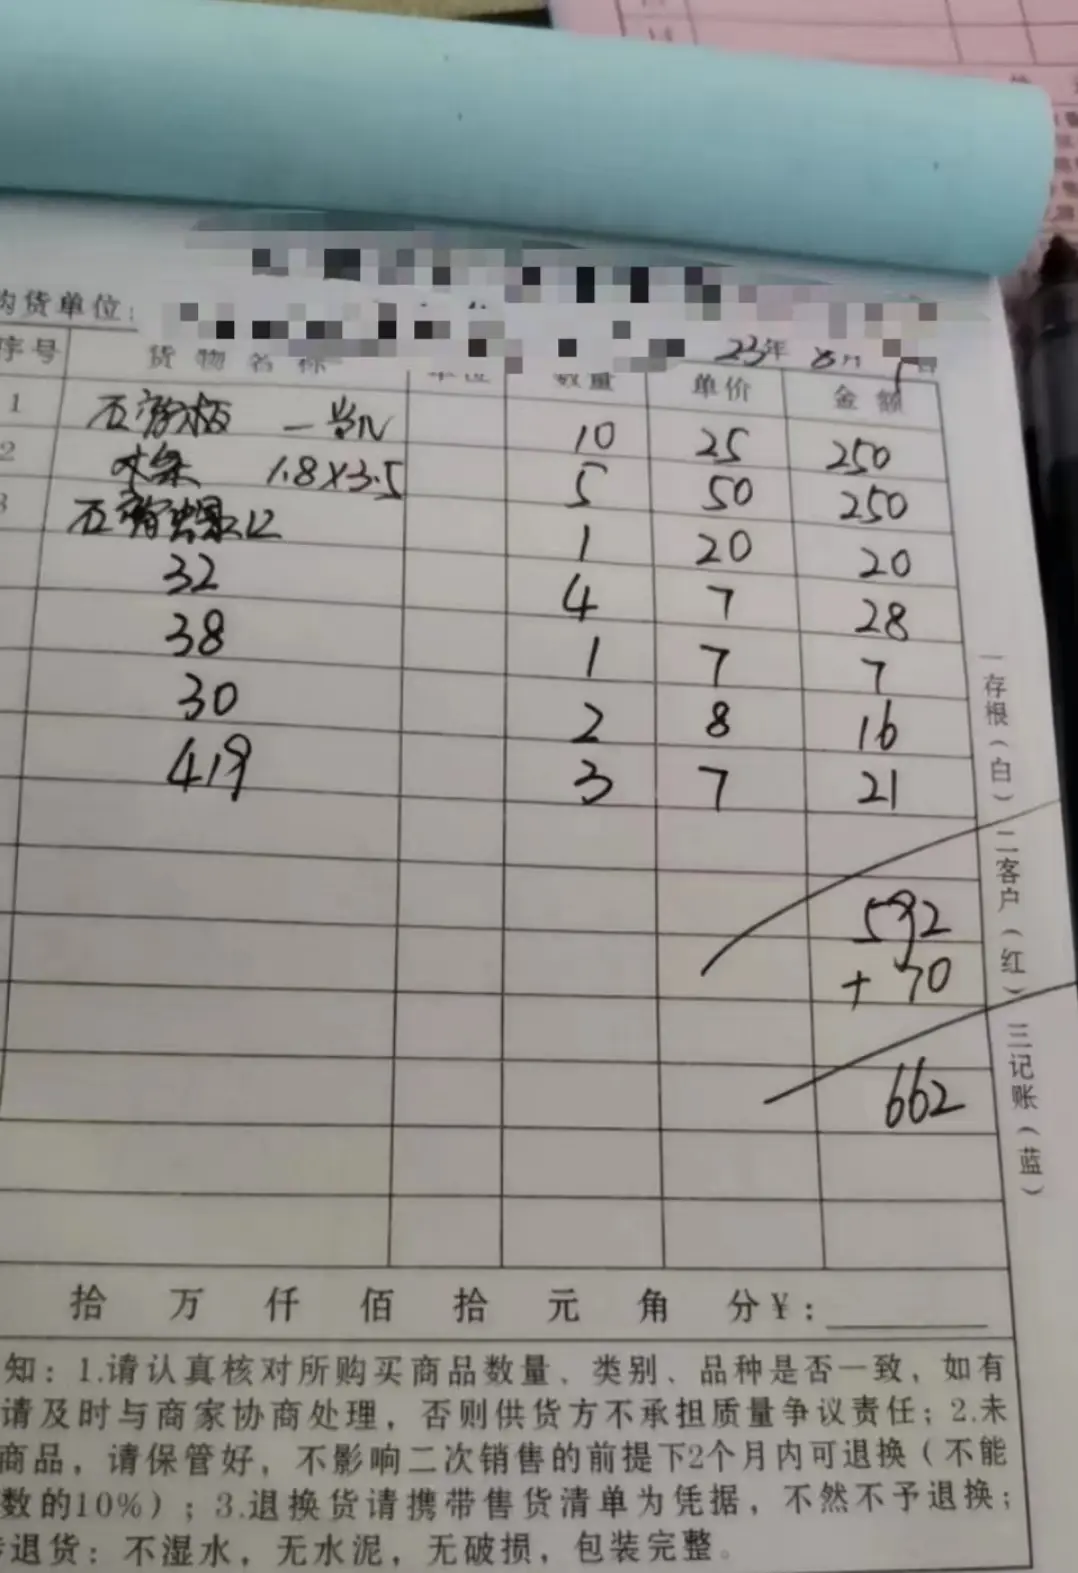 购货单位：
23年 8月 日
序号 货物名称 单位 数量 单价 金额
1 石膏板 10 25 250
2 木条 1.8×3.5 5 50 250
3 石膏 1 20 20
32 4 7 28
38 1 7 7
30 2 8 16
419 3 7 21
592
+70
662
拾 万 仟 佰 拾 元 角 分¥：
知：1.请认真核对所购买商品数量、类别、品种是否一致，如有
请及时与商家协商处理，否则供货方不承担质量争议责任；2.未
商品，请保管好，不影响二次销售的前提下2个月内可退换（不能
数的10%）；3.退换货请携带售货清单为凭据，不然不予退换；
退货：不湿水，无水泥，无破损，包装完整。
一存根（白）二客户（红）三记账（蓝）